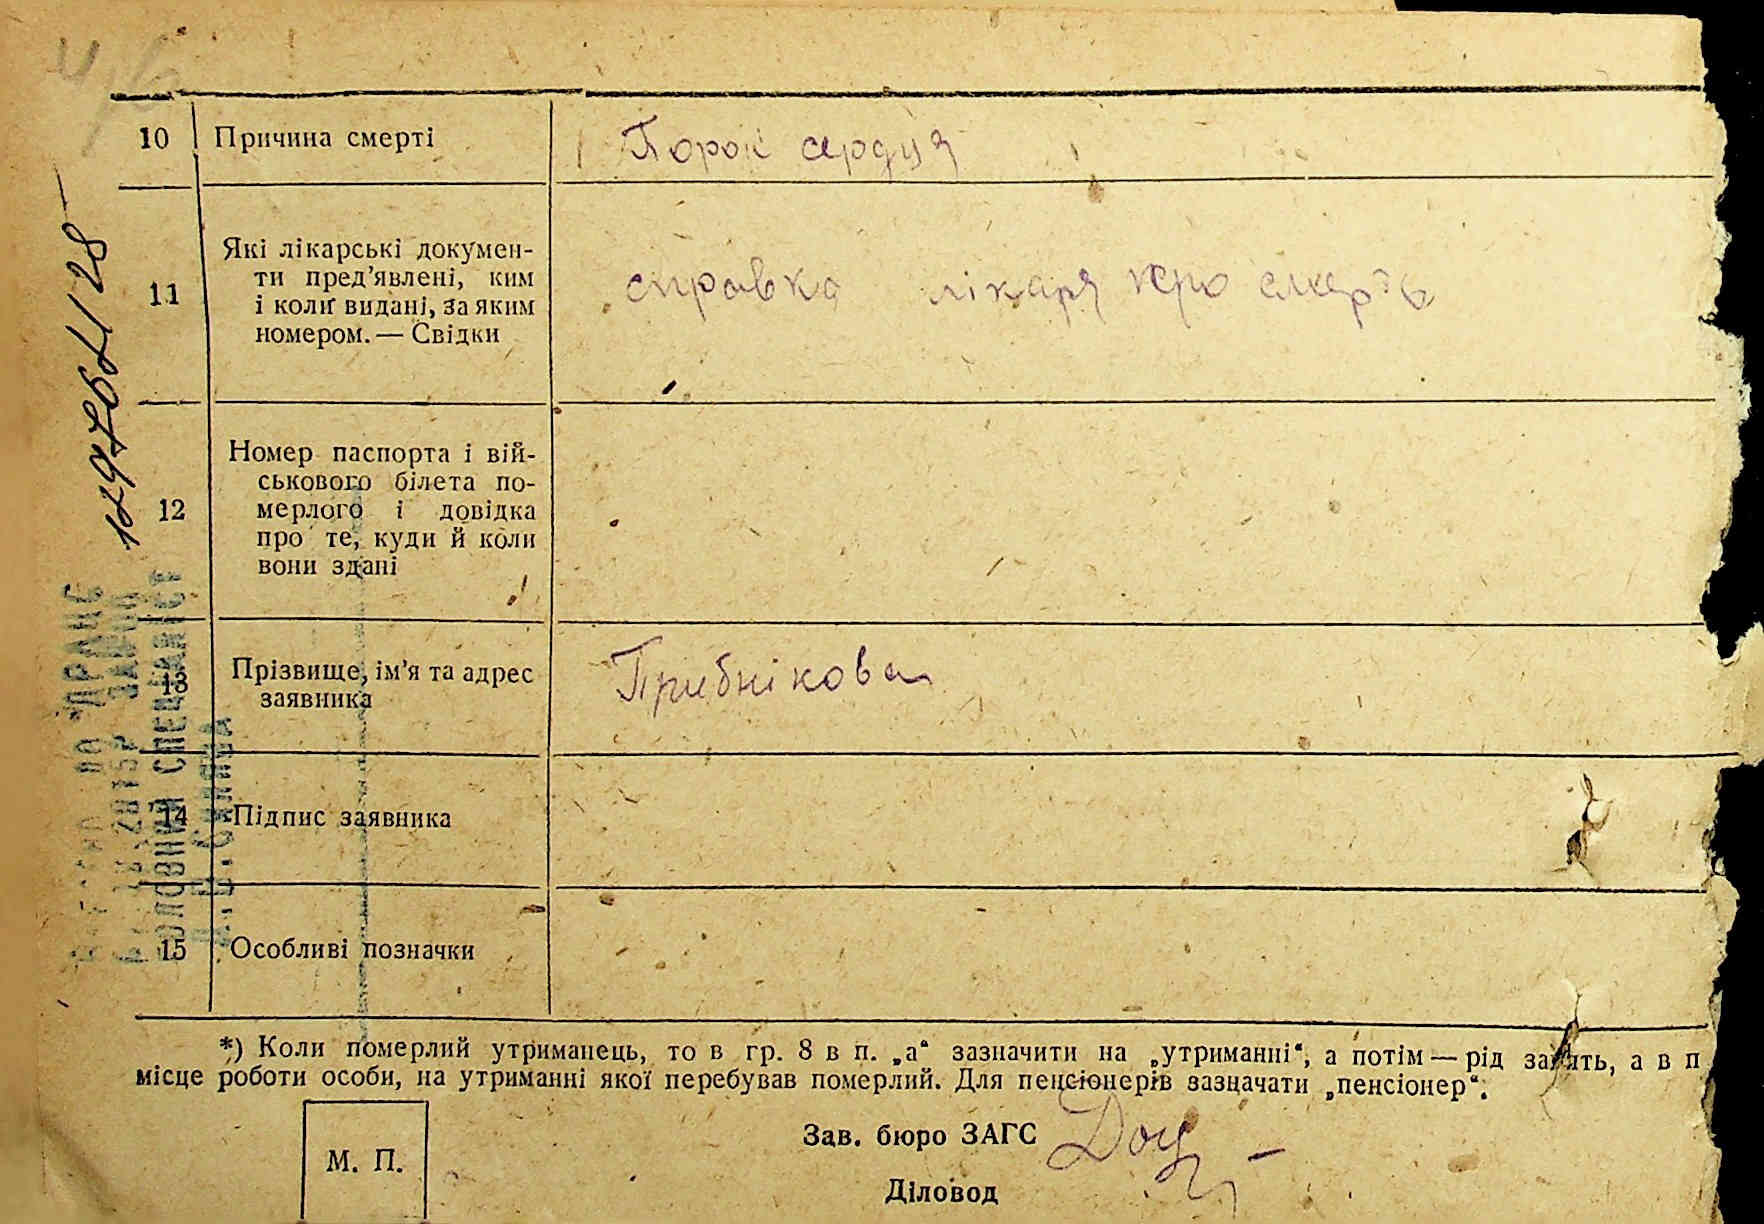 10 Причина смерті Порок сердця
11 Які лікарські докумен-
ти пред'явлені, ким
і коли видані, за яким
номером. — Свідки
справка лікаря про смерть
12 Номер паспорта і вій-
ськового білета по-
мерлого і довідка
про те, куди й коли
вони здані
13 Прізвище, ім'я та адрес
заявника
Прибнікова
14 Підпис заявника
15 Особливі позначки
*) Коли померлий утриманець, то в гр. 8 в п. „а“ зазначити на „утриманні“, а потім — рід занять, а в п
місце роботи особи, на утриманні якої перебував померлий. Для пенсіонерів зазначати „пенсіонер“.
Зав. бюро ЗАГС
М. П.
Діловод